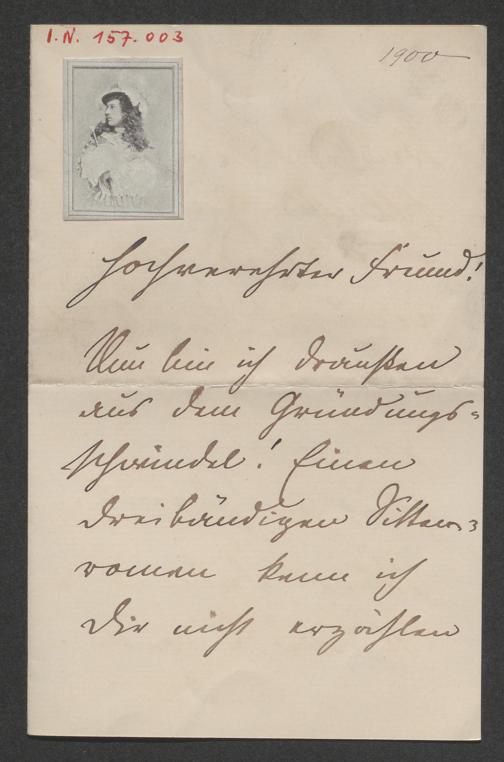 I.N. 157.003
1900
Hochverehrter Freund!
Nun bin ich draußen
aus dem Gründungs-
schwindel! Einen
dreibändigen Sitten-
roman kann ich
Dir nicht erzählen